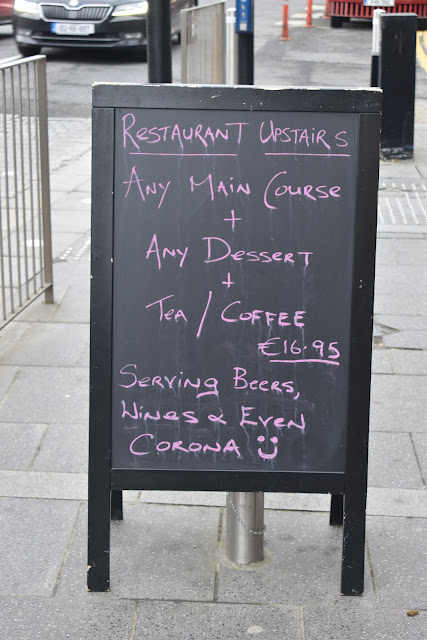 RESTAURANT UPSTAIRS
ANY MAIN COURSE
+
ANY DESSERT
+
TEA / COFFEE
€16.95
SERVING BEERS,
WINES & EVEN
CORONA :)